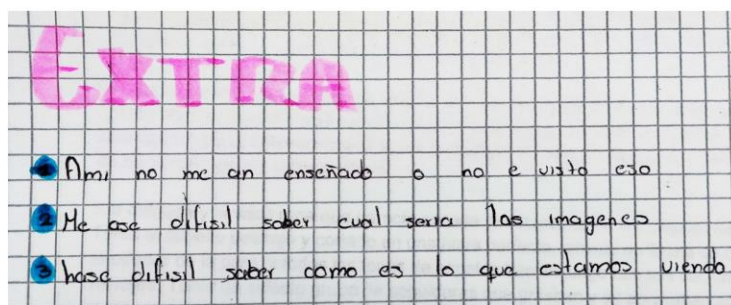 EXTRA
1 Ami no me an enseñado o no e visto eso
2 Me ase difisil saber cual seria las imagenes
3 hase difisil saber como es lo que estamos viendo